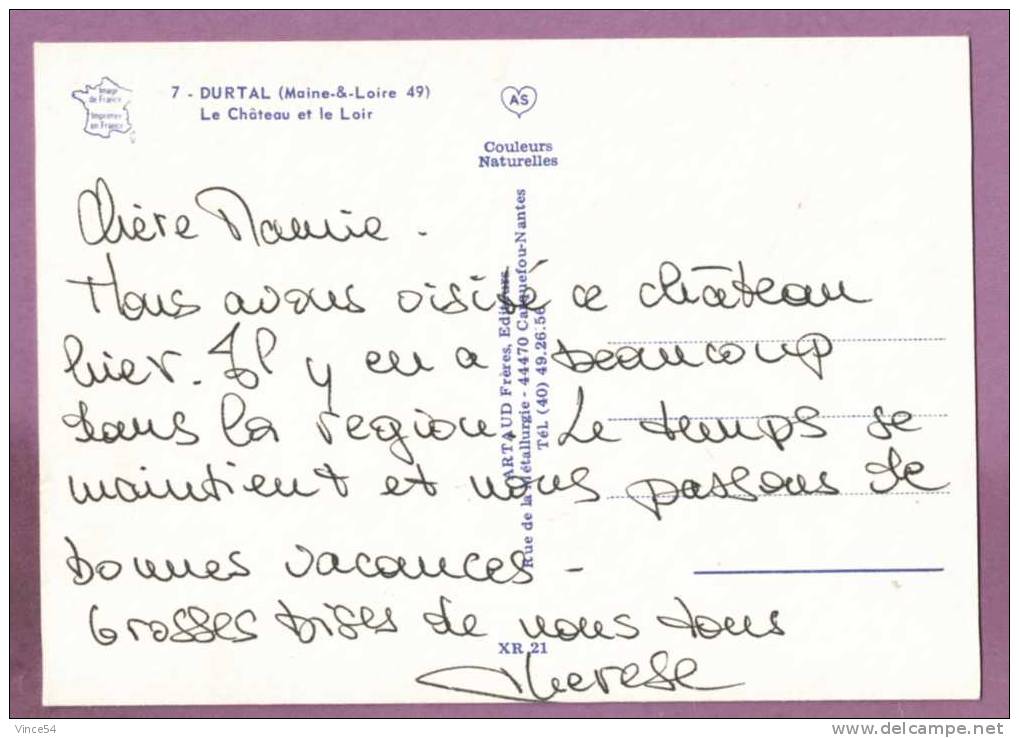 Image
de France
Imprimée
en France
7 - DURTAL (Maine-&-Loire 49)
Le Château et le Loir
AS
Couleurs
Naturelles
ARTAUD Frères, Editeurs.
Rue de la Métallurgie - 44470 Carquefou-Nantes
Tél. (40) 49.26.56
Chère Mamie.
Nous avons visité ce château
hier. Il y en a beaucoup
dans la region. Le temps se
maintient et nous passons de
bonnes vacances -
Grosses bises de nous tous
Therese
XR 21
Vince54
www.delcampe.net